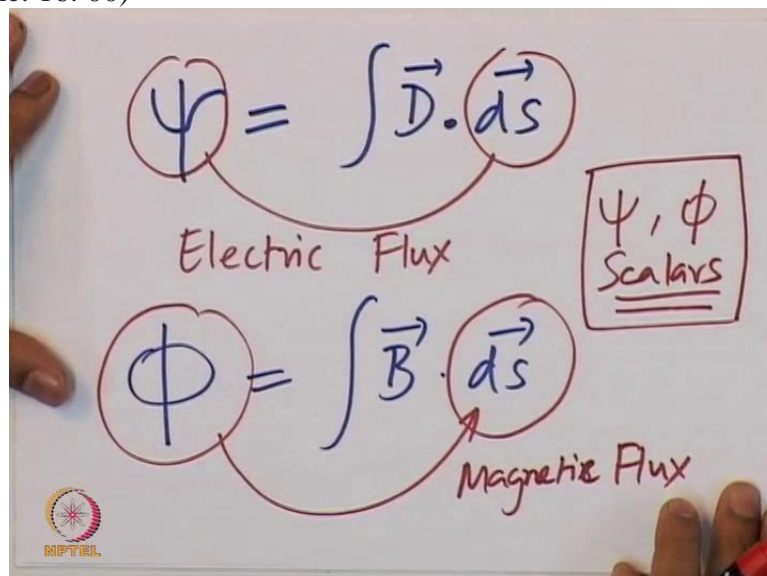 16: 00)
ψ = ∫ D⃗ . d⃗s
Electric Flux
ψ, φ
Scalars
φ = ∫ B⃗ . d⃗s
Magnetic Flux
NPTEL